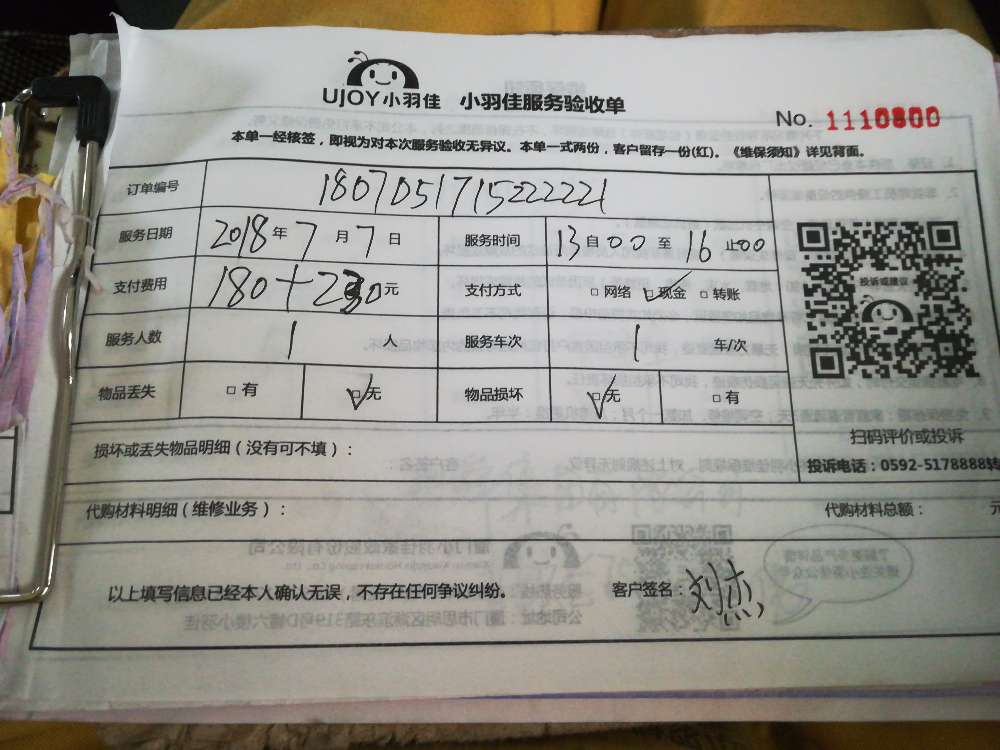 UJOY小羽佳 小羽佳服务验收单
No. 1110800
本单一经核签，即视为对本次服务验收无异议。本单一式两份，客户留存一份(红)。《维保须知》详见背面。
订单编号 1807051715222221
服务日期 2018年7月7日 服务时间 13自00至16止00
支付费用 180+230元 支付方式 □网络 ☑现金 □转账
服务人数 1人 服务车次 1车/次
物品丢失 □有 ☑无 物品损坏 ☑无 □有
投诉或建议
扫码评价或投诉
投诉电话：0592-5178888转
损坏或丢失物品明细（没有可不填）：
代购材料明细（维修业务）： 代购材料总额： 元
以上填写信息已经本人确认无误，不存在任何争议纠纷。 客户签名：刘杰